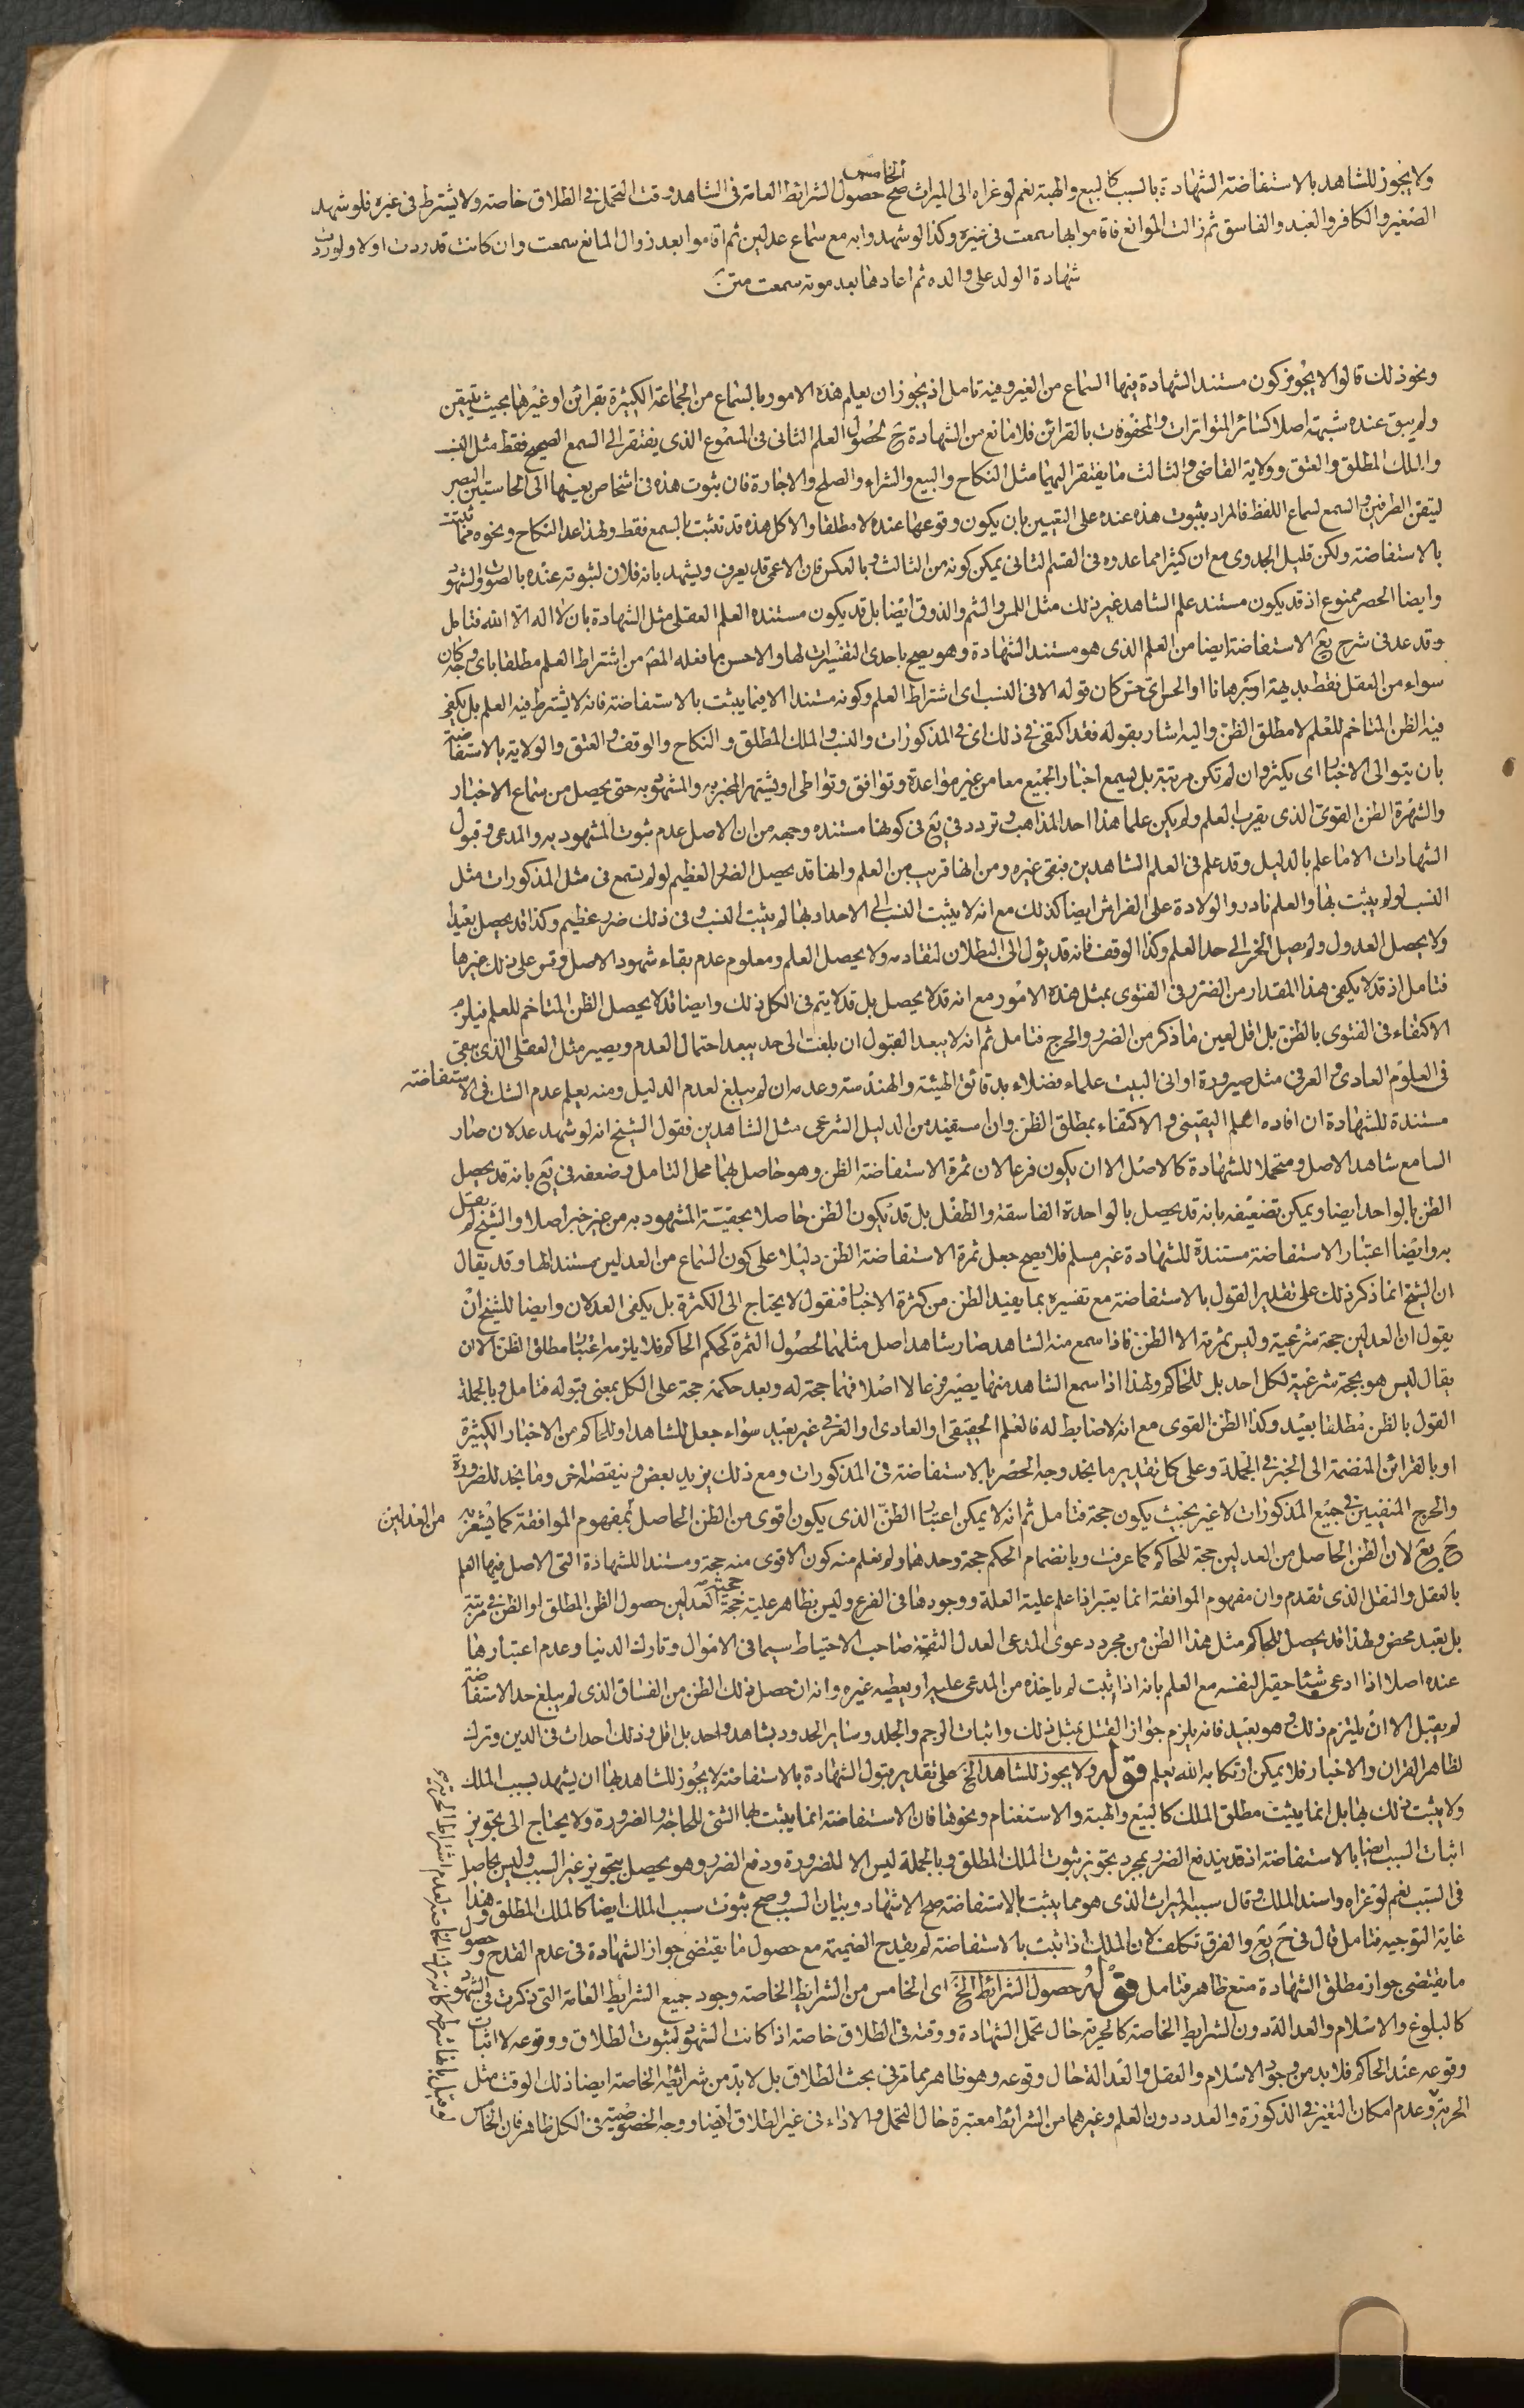 ولا يجوز للشاهد بالاستفاضة الشهادة بالسبب كالبيع والهبة نعم لو عزاه الى الميراث صح الخامس حصول الشرائط العامة فى الشاهد وقت التحمل فى الطلاق خاصة ولا يشترط فى غيره فلو شهد
الصغير والكافر والعبد والفاسق ثم زالت الموانع فاقاموا بها سمعت فى غيره وكذا لو شهدوا به مع سماع عدلين ثم اقاموا بعد زوال المانع سمعت وان كانت قد ردت اولا ولو ردت
شهادة الولد على والده ثم اعادها بعد موته سمعت متن
ونحو ذلك قالوا لا يجوز كون مستند الشهادة فيها السماع من الغير وفيه تامل اذ يجوز ان يعلم هذه الامور بالسماع من الجماعة الكثيرة بقرائن او غيرها بحيث يتيقن
ولم يبق عنده شبهة اصلا كسائر المتواترات والمحفوفات بالقرائن فلا مانع من الشهادة ح لحصول العلم الثانى فى المسموع الذى يفتقر الى السمع الصحيح فقط مثل النسب
والملك المطلق والعتق وولاية القاضى والثالث ما يفتقر اليهما مثل النكاح والبيع والشراء والصلح والاجارة فان ثبوت هذه فى اشخاص بعينها الى الحاستين البصر
ليتقن الطرفين والسمع لسماع اللفظ فالمراد بثبوت هذه عنده على التعيين بان يكون وقوعها عنده لا مطلقا والا كل هذه قد تثبت بالسمع فقط ولهذا عد النكاح ونحوه مما ثبتت
بالاستفاضة ولكن قليل الجدوى مع ان كثيرا مما عدوه فى القسم الثانى يمكن كونه من الثالث وبالعكس فان الاعمى قد يعرف ويشهد بانه فلان لثبوته عنده بالصوت والشهود
وايضا الحصر ممنوع اذ قد يكون مستند علم الشاهد غير ذلك مثل اللمس والشم والذوق ايضا بل قد يكون مستنده العلم العقلى مثل الشهادة بان لا اله الا الله فتامل
وقد عد فى شرح يع الاستفاضة ايضا من العلم الذى هو مستند الشهادة وهو يصح باحدى التفسيرات لها والاحسن ما فعله المص من اشتراط العلم مطلقا باى وجه كان
سواء من العقل فقط بديهة او برهانا او الحس اى حس كان قوله الا فى النسب اى اشتراط العلم وكونه مستندا الا فيما يثبت بالاستفاضة فانه لا يشترط فيه العلم بل يكفى
فيه الظن المتاخم للعلم لا مطلق الظن واليه اشار بقوله فقد اكتفى فى ذلك اى فى المذكورات والنسب والملك المطلق والنكاح والوقف والعتق والولاية بالاستفاضة
بان يتوالى الاخبار اى يكثر وان لم تكن مرتبة بل يسمع اخبار الجميع معا من غير مواعدة وتوافق وتواطى او يشتهر المخبر به والمشهود به حتى يحصل من سماع الاخبار
والشهرة الظن القوى الذى يقرب العلم ولم يكن علما هذا احد المذاهب وتردد فى يع فى كونها مستنده وجهه من ان الاصل عدم ثبوت المشهود به والمدعى وقبول
الشهادات الا ما علم بالدليل وقد علم فى العلم الشاهدين فبقى غيره ومن انها قريب من العلم وانها قد يحصل الضرر العظيم لو لم تسمع فى مثل المذكورات مثل
النسب لو لم يثبت بها والعلم نادر والولادة على الفراش ايضا كذلك مع انه لا يثبت النسب الى الاجداد بها لم يثبت النسب وفى ذلك ضرر عظيم وكذا قد يحصل بعيدا
ولا يحصل العدول ولم يصل الخبر الى حد العلم وكذا الوقف فانه قد يئول الى البطلان لتقادمه ولا يحصل العلم ومعلوم عدم بقاء شهود الاصل وقس على ذلك غيرها
فتامل اذ قد لا يكفى هذا المقدار من الضرر فى الفتوى بمثل هذه الامور مع انه قد لا يحصل بل قد لا يتم فى الكل ذلك وايضا قد لا يحصل الظن المتاخم للعلم فيلزم
الاكتفاء فى الفتوى بالظن بل اقل لعين ما ذكر من الضرر والحرج فتامل ثم انه لا يبعد القبول ان بلغت الى حد يبعد احتمال العدم ويصير مثل العقلى الذى يبقى
فى العلوم العادى والعرفى مثل صيرورة اوانى البيت علماء فضلاء بدقائق الهيئة والهندسة وعدمه ان لم يبلغ لعدم الدليل ومنه يعلم عدم الشك فى الاستفاضة
مستندة للشهادة ان افاده العلم اليقينى والاكتفاء بمطلق الظن وان استفيد من الدليل الشرعى مثل الشاهدين فقول الشيخ انه لو شهد عدلان صار
السامع شاهد الاصل ومتحملا للشهادة كالاصل الا ان يكون فرعا لان ثمرة الاستفاضة الظن وهو حاصل بهما محل التامل وضعفه فى يع بانه قد يحصل
الظن بالواحد ايضا ويمكن تضعيفه بانه قد يحصل بالواحدة الفاسقة والطفل بل قد يكون الظن حاصلا بحقيته المشهود به من غير خبر اصلا والشيخ لم يقل
به وايضا اعتبار الاستفاضة مستندة للشهادة غير مسلم فلا يصح جعل ثمرة الاستفاضة الظن دليلا على كون السماع من العدلين مستندا لها وقد يقال
ان الشيخ انما ذكر ذلك على تقدير القول بالاستفاضة مع تفسيره بما يفيد الظن من كثرة الاخبار فنقول لا يحتاج الى الكثرة بل يكفى العدلان وايضا للشيخ ان
يقول ان العدلين حجة شرعية وليس ثمرته الا الظن فاذا سمع منه الشاهد صار شاهد اصل مثلهما لحصول الثمرة كحكم الحاكم فلا يلزمه اعتبار مطلق الظن الا ان
يقال ليس هو بحجة شرعية لكل احد بل للحاكم ولهذا اذا سمع الشاهد منهما يصير فرعا لا اصلا فهما حجة له وبعد حكمه حجة على الكل بمعنى قبوله فتامل وبالجملة
القول بالظن مطلقا بعيد وكذا الظن القوى مع انه لا ضابط له فالعلم الحقيقى او العادى او العرفى غير بعيد سواء جعل للشاهد او للحاكم من الاخبار الكثيرة
او بالقرائن المنضمة الى الخبر فى الجملة وعلى كل تقدير ما يجد وجه الحصر بالاستفاضة فى المذكورات ومع ذلك يزيد بعض وينقص اخر وما يجد للضرورة
والحرج المنفيين فى جميع المذكورات لا غير بحيث يكون حجة فتامل ثم انه لا يمكن اعتبار الظن الذى يكون اقوى من الظن الحاصل من العدلين بمفهوم الموافقة كما يشعر به
ح يع لان الظن الحاصل من العدلين حجة للحاكم كما عرفت وبانضمام الحكم حجة وحدهما ولم نعلم منه كون الاقوى منه حجة ومستندا للشهادة التى الاصل فيها العلم
بالعقل والنقل الذى تقدم وان مفهوم الموافقة انما يعتبر اذا علم علية العلة ووجودها فى الفرع وليس بظاهر علية حجية العدلين حصول الظن المطلق او الظن فى مرتبة
بل تعبد محض ولهذا قد يحصل للحاكم مثل هذا الظن من مجرد دعوى المدعى العدل الثقة صاحب الاحتياط سيما فى الاموال وتارك الدنيا وعدم اعتبارها
عنده اصلا اذا ادعى شيئا حقيرا لنفسه مع العلم بانه اذا ثبت لم ياخذه من المدعى عليه او يعطيه غيره وانه ان حصل ذلك الظن من الفساق الذى لم يبلغ حد الاستفاضة
لم يقبل الا ان يلتزم ذلك وهو بعيد فانه يلزم جواز القتل بمثل ذلك واثبات الرجم والجلد وسائر الحدود بشاهد واحد بل اقل وذلك احداث فى الدين وترك
لظاهر القران والاخبار فلا يمكن ارتكابه الله يعلم قوله ولا يجوز للشاهد الخ على تقدير قبول الشهادة بالاستفاضة لا يجوز للشاهد بها ان يشهد بسبب الملك
ولا يثبت ذلك بها بل انما يثبت مطلق الملك كالبيع والهبة والاستغنام ونحوها فان الاستفاضة انما يثبت بها الشئ للحاجة والضرورة ولا يحتاج الى تجويز
اثبات السبب ايضا بالاستفاضة اذ قد يندفع الضرر بمجرد تجويز ثبوت الملك المطلق وبالجملة ليس الا للضرورة ودفع الضرر وهو يحصل بتجويز غير السبب وليس بحاصل
فى السبب نعم لو عزاه واسند الملك وقال سببه الميراث الذى هو مما يثبت بالاستفاضة صح الاشهاد وبيان السبب وصح ثبوت سبب الملك ايضا كالملك المطلق وهذا
غاية التوجيه فتامل قال فى ح يع والفرق تكلف لان الملك اذا ثبت بالاستفاضة لم يقدح الضميمة مع حصول ما يقتضى جواز الشهادة فى عدم القدح وحصول
ما يقتضى جواز مطلق الشهادة منع ظاهر فتامل قوله حصول الشرائط الخ اى الخامس من الشرائط الخاصة وجود جميع الشرائط العامة التى ذكرت فى الشهود
كالبلوغ والاسلام والعدالة دون الشرايط الخاصة كالحرية حال تحمل الشهادة ووقته فى الطلاق خاصة اذا كانت الشهود لثبوت الطلاق ووقوعه لا اثبات
وقوعه عند الحاكم فلا بد من وجود الاسلام والعقل والعدالة حال وقوعه وهو ظاهر مما مر فى بحث الطلاق بل لا بد من شرائطه الخاصة ايضا ذلك الوقت مثل
الحرية وعدم امكان التغير فى الذكورة والعدد دون العلم وغيرهما من الشرائط معتبرة حال التحمل والاداء فى غير الطلاق ايضا ووجه الخصوصية فى الكل ظاهر فان الخامس